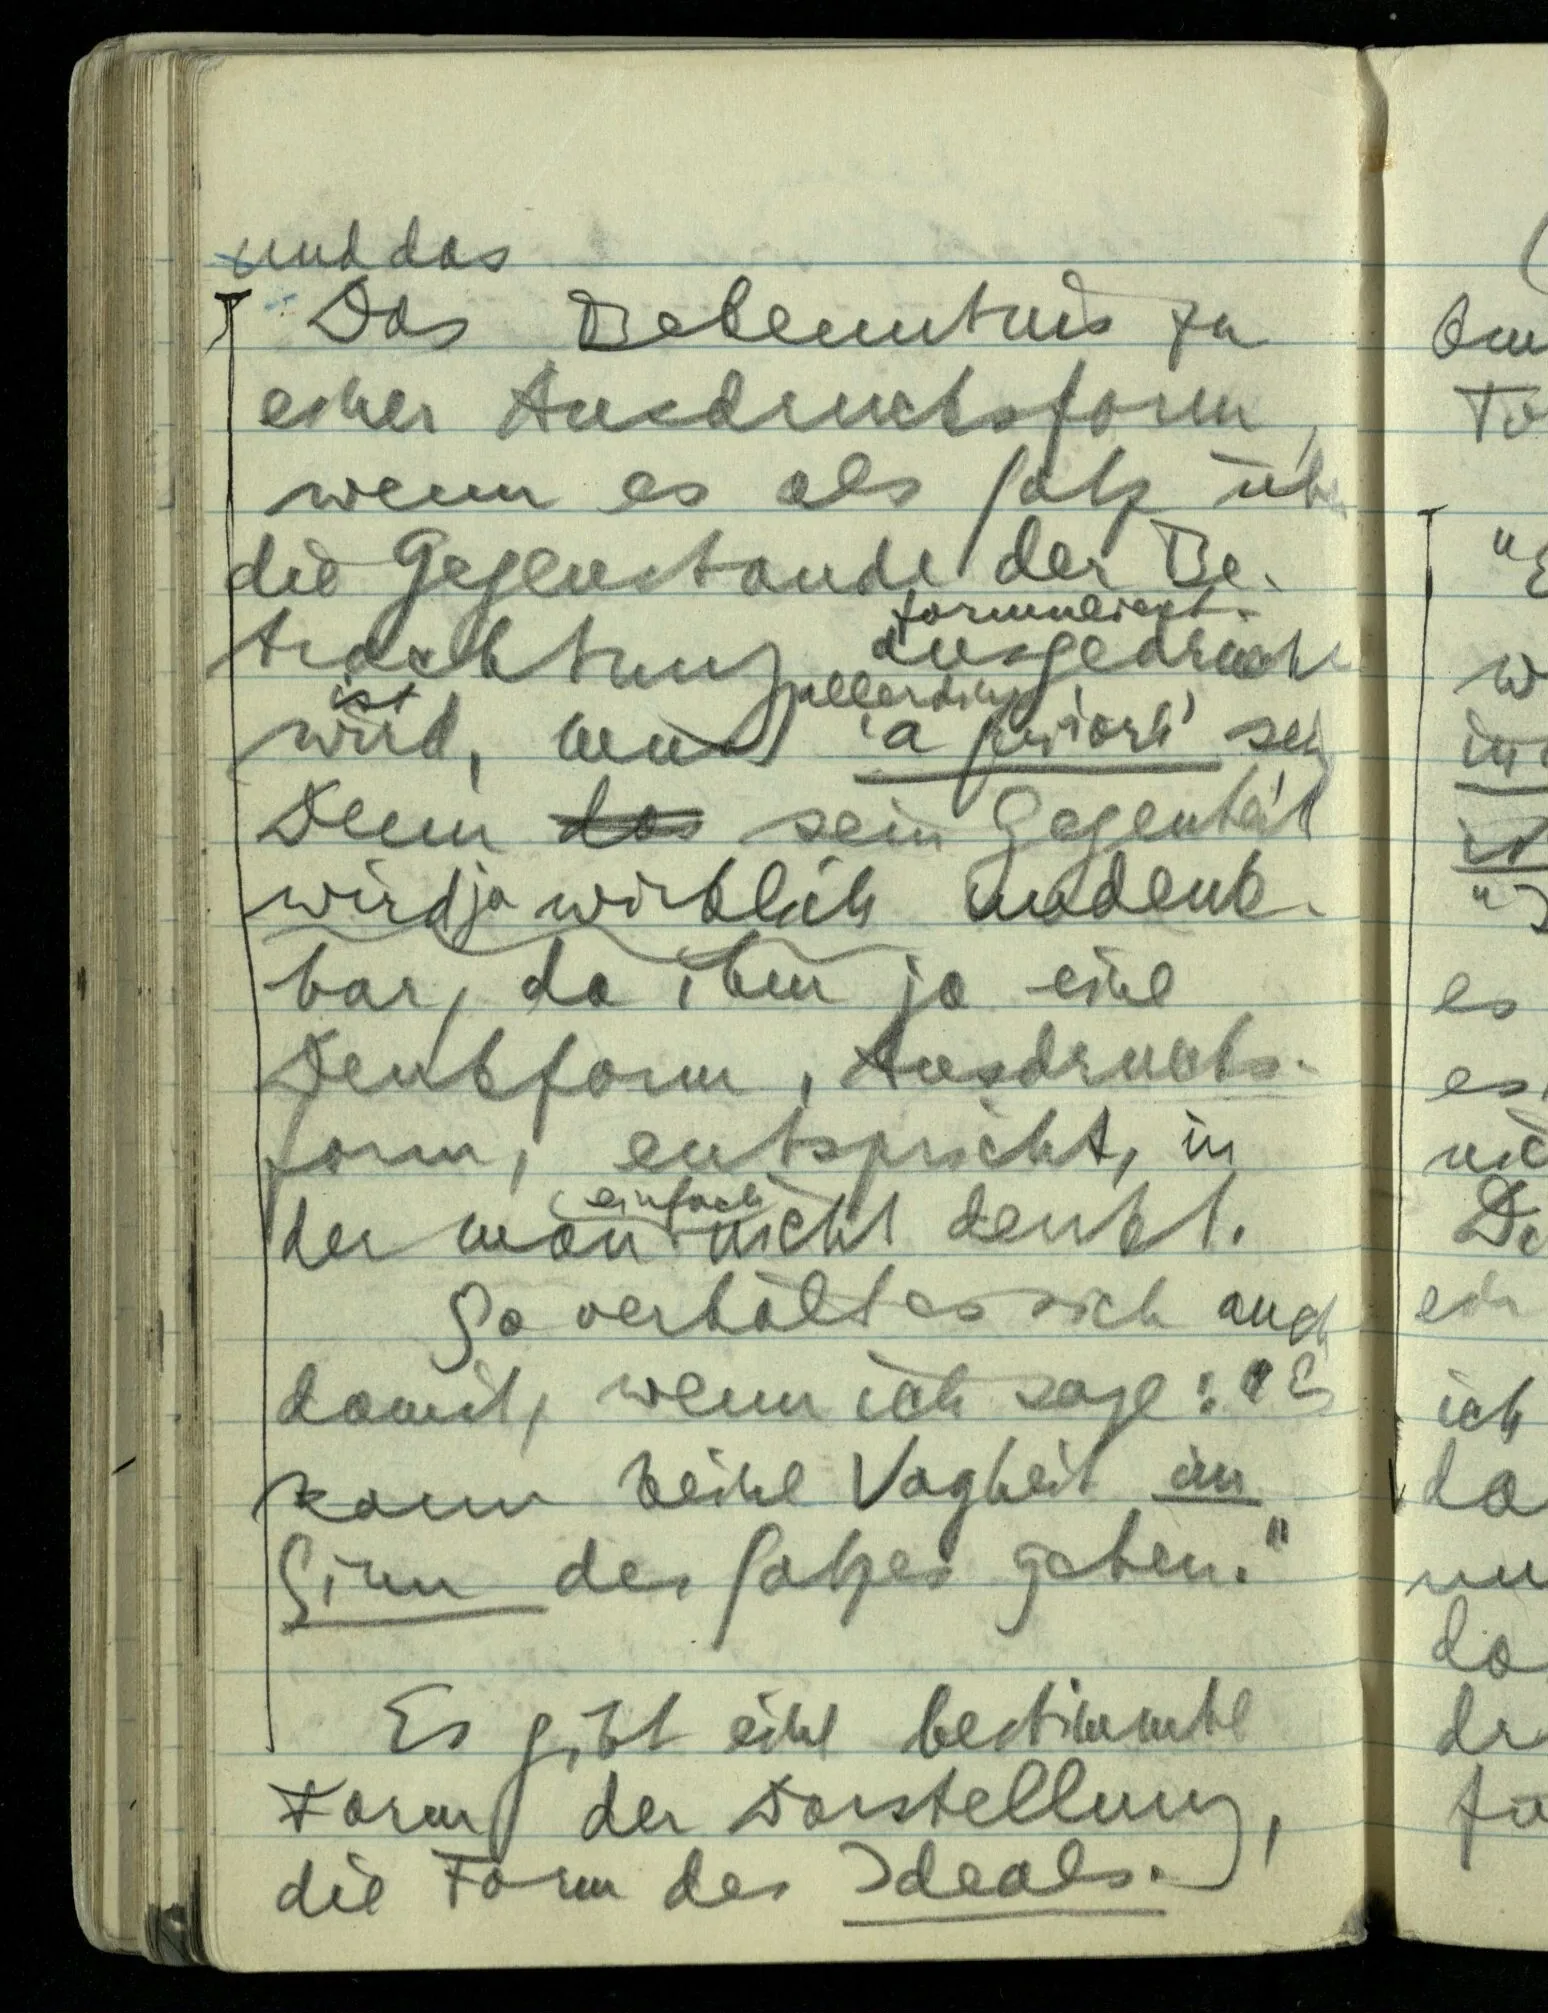 und das
Das Bekenntnis zu
einer Ausdrucksform,
wenn es als Satz über
die Gegenstände der Be-
formuliert
trachtung ausgedrückt
ist allerdings
wird, muß 'a priori' sein
Denn das sein Gegenteil
wird ja wirklich undenk-
bar, da ihm ja eine
Denkform, Ausdrucks-
form, entspricht, in
einfach
der man nicht denkt.
So verhält es sich auch
damit, wenn ich sage: "Es
kann keine Vagheit im
Sinn des Satzes geben."
Es gibt eine bestimmte
Form der Darstellung,
die Form des Ideals.